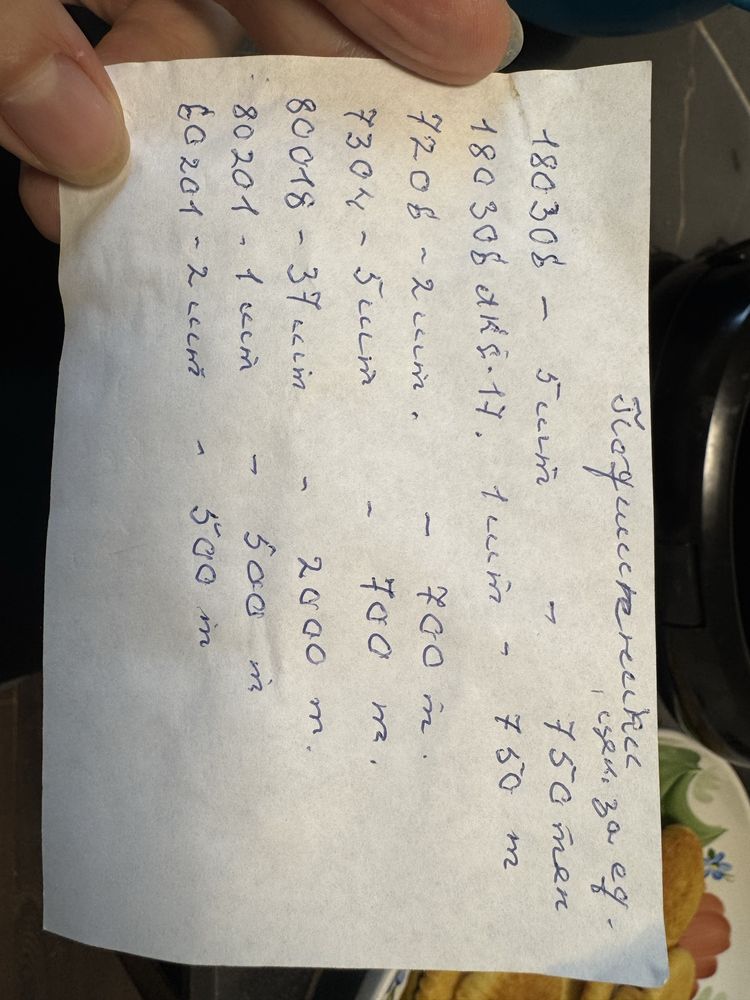 Подшипники
цен. за ед.
180308 - 5 шт - 750 тен
180308 акБ.17. 1 шт - 750 т
7208 - 2 шт. - 700 т.
7304 - 5 шт - 700 т.
80018 - 37 шт - 2000 т.
80201 - 1 шт - 500 т
60201 - 2 шт - 500 т